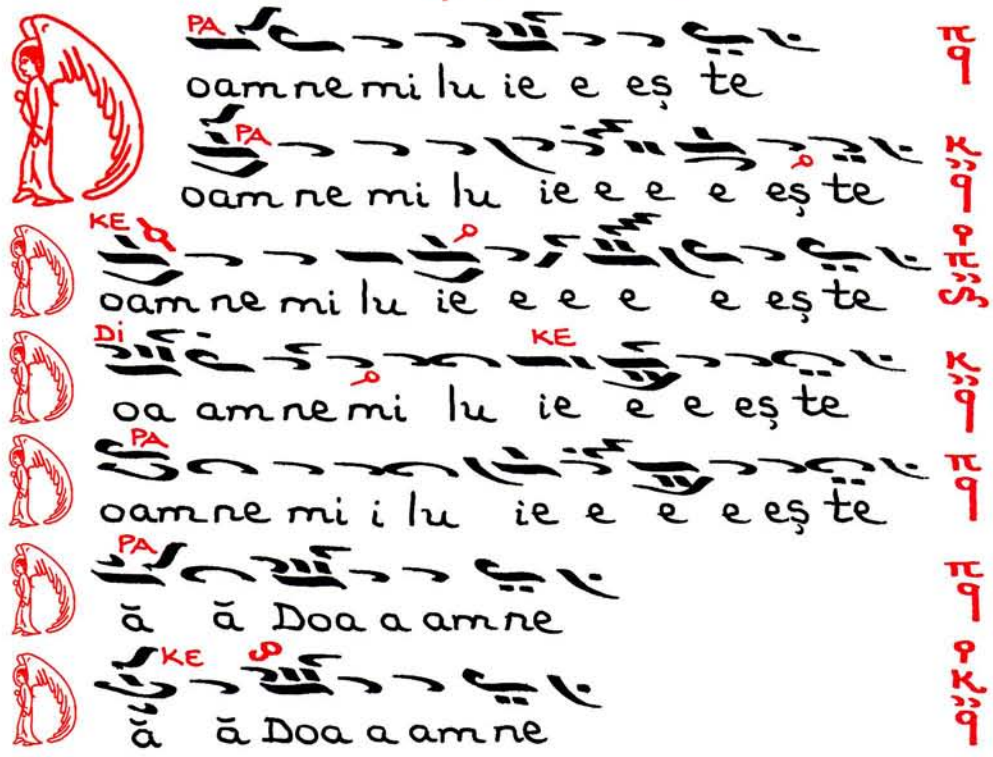 PA
oam ne mi lu ie e eș te
PA
oam ne mi lu ie e e e eș te
KE
oam ne mi lu ie e e e e eș te
Di KE
oa am ne mi lu ie e e eș te
PA
oam ne mi i lu ie e e e eș te
PA
ă ă Doa a am ne
KE
ă ă Doa a am ne